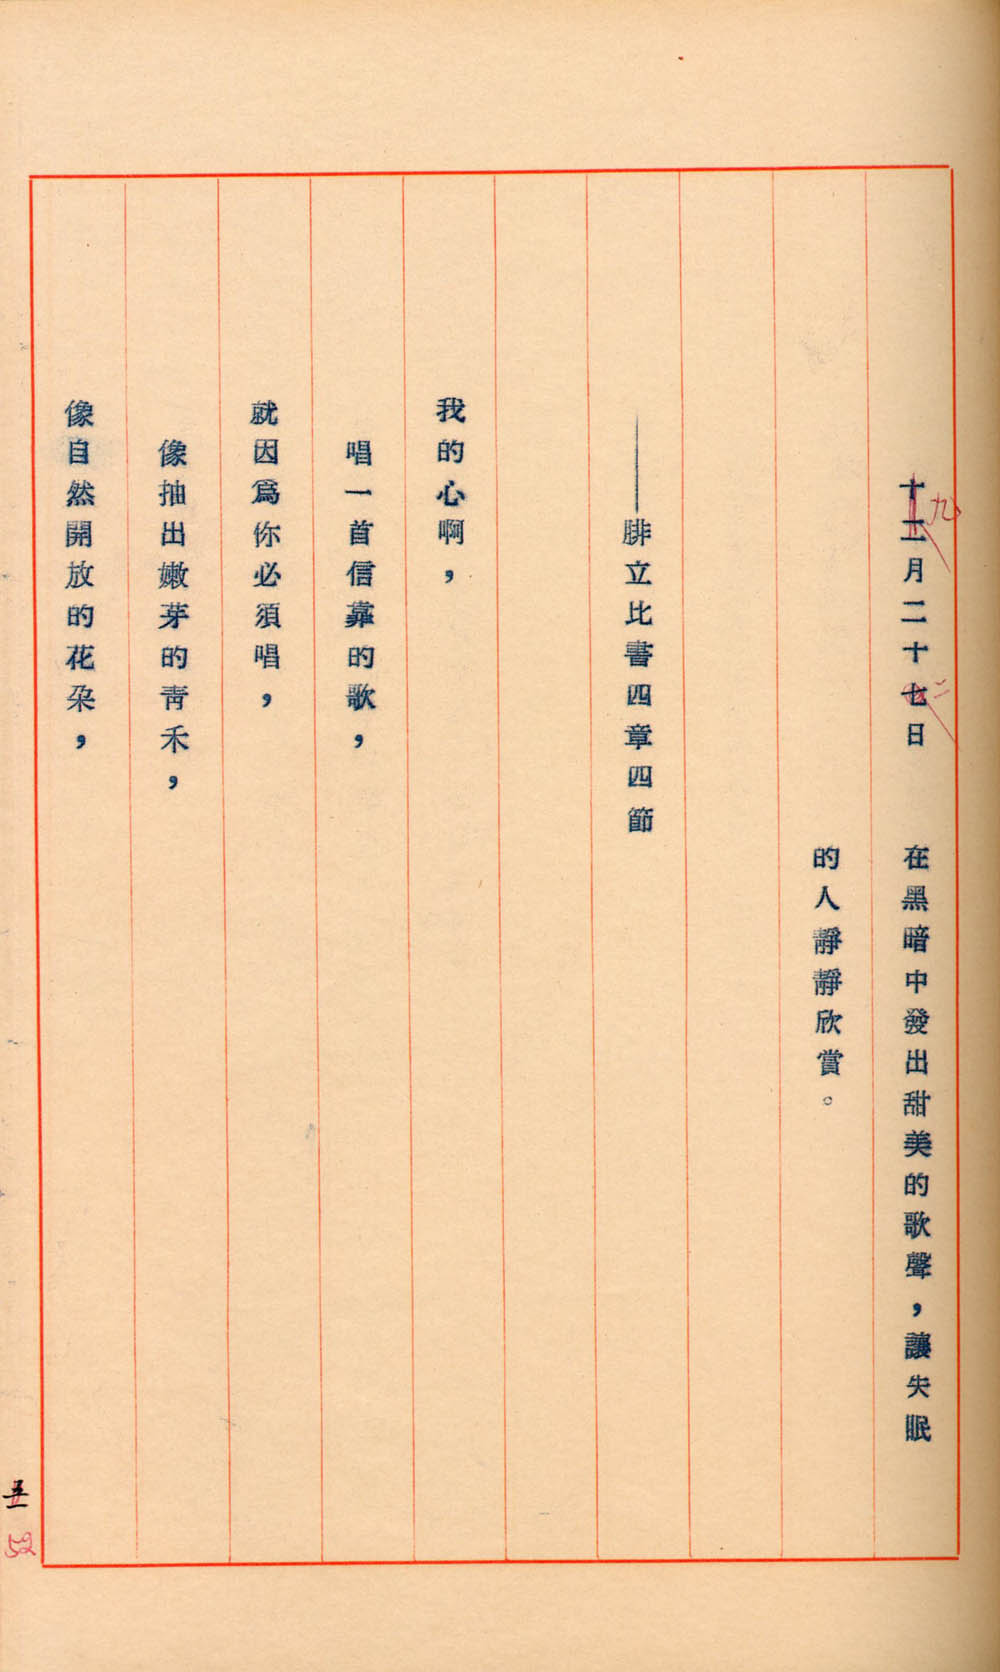 十二月二十七日　在黑暗中發出甜美的歌聲，讓失眠
九
二
的人靜靜欣賞。
——腓立比書四章四節
我的心啊，
唱一首信靠的歌，
就因爲你必須唱，
像抽出嫩芽的青禾，
像自然開放的花朶，
五
52